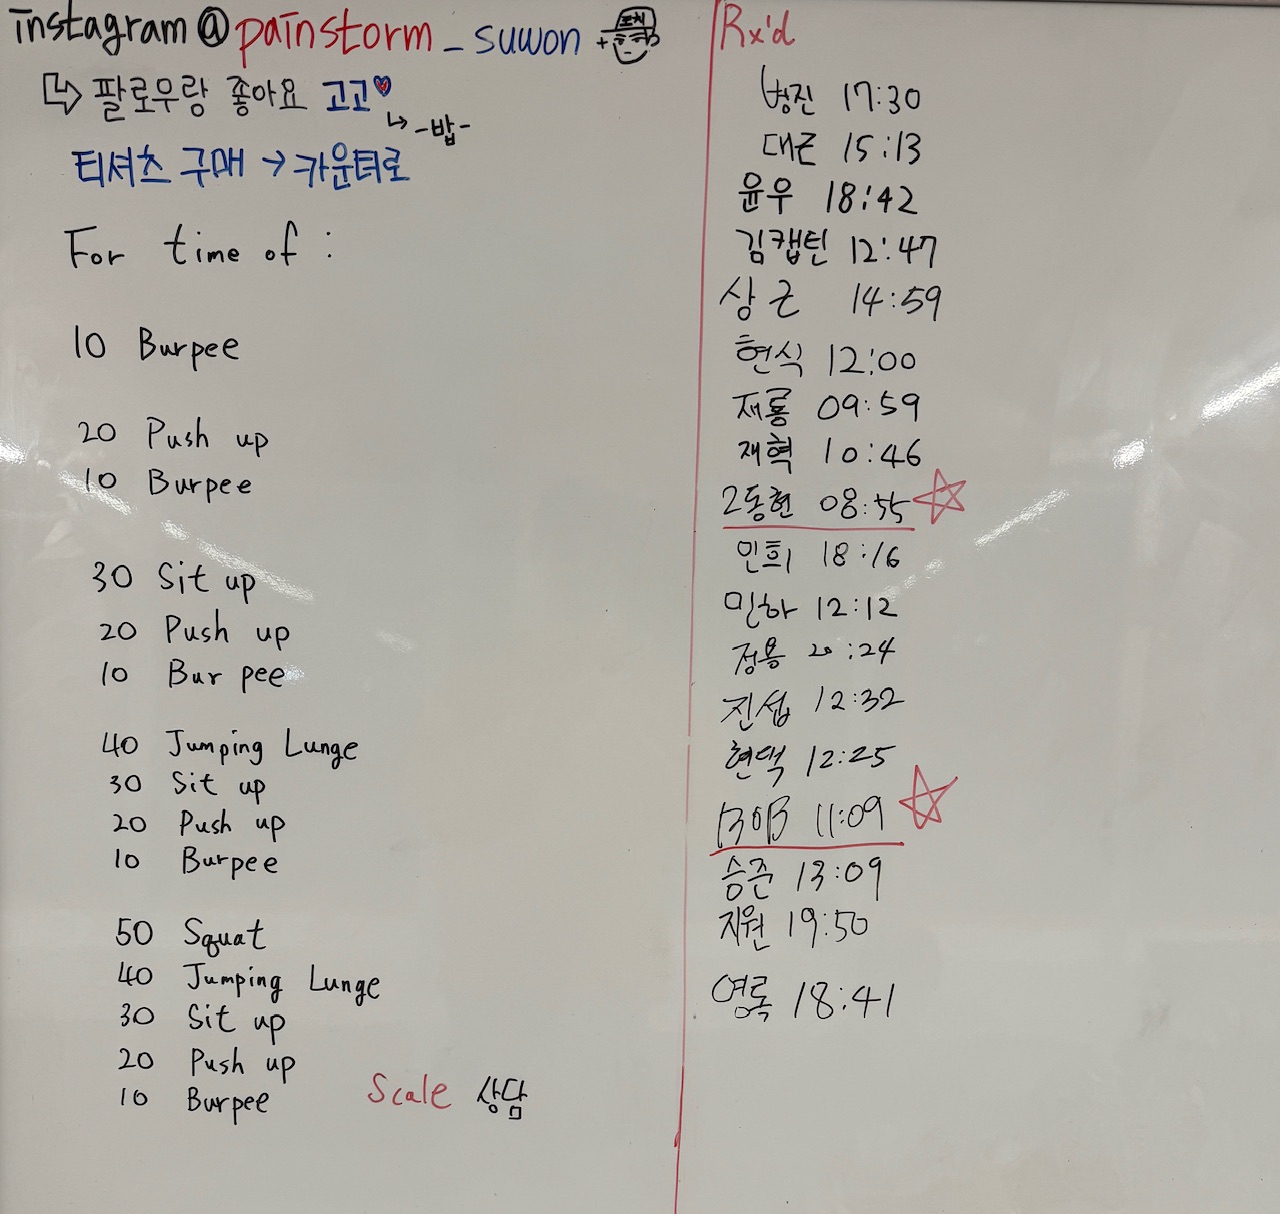 instagram@painstorm_suwon +
팔로우랑 좋아요 고고
-밥-
티셔츠 구매 → 카운터로
For time of :
10 Burpee
20 Push up
10 Burpee
30 Sit up
20 Push up
10 Burpee
40 Jumping Lunge
30 Sit up
20 Push up
10 Burpee
50 Squat
40 Jumping Lunge
30 Sit up
20 Push up
10 Burpee
Scale 상담
Rx'd
병진 17:30
대근 15:13
윤우 18:42
김캡틴 12:47
상근 14:59
현식 12:00
재룡 09:59
재혁 10:46
2동현 08:55
민희 18:16
민하 12:12
정용 20:24
진섭 12:32
현택 12:25
BOB 11:09
승준 13:09
지원 19:50
영록 18:41